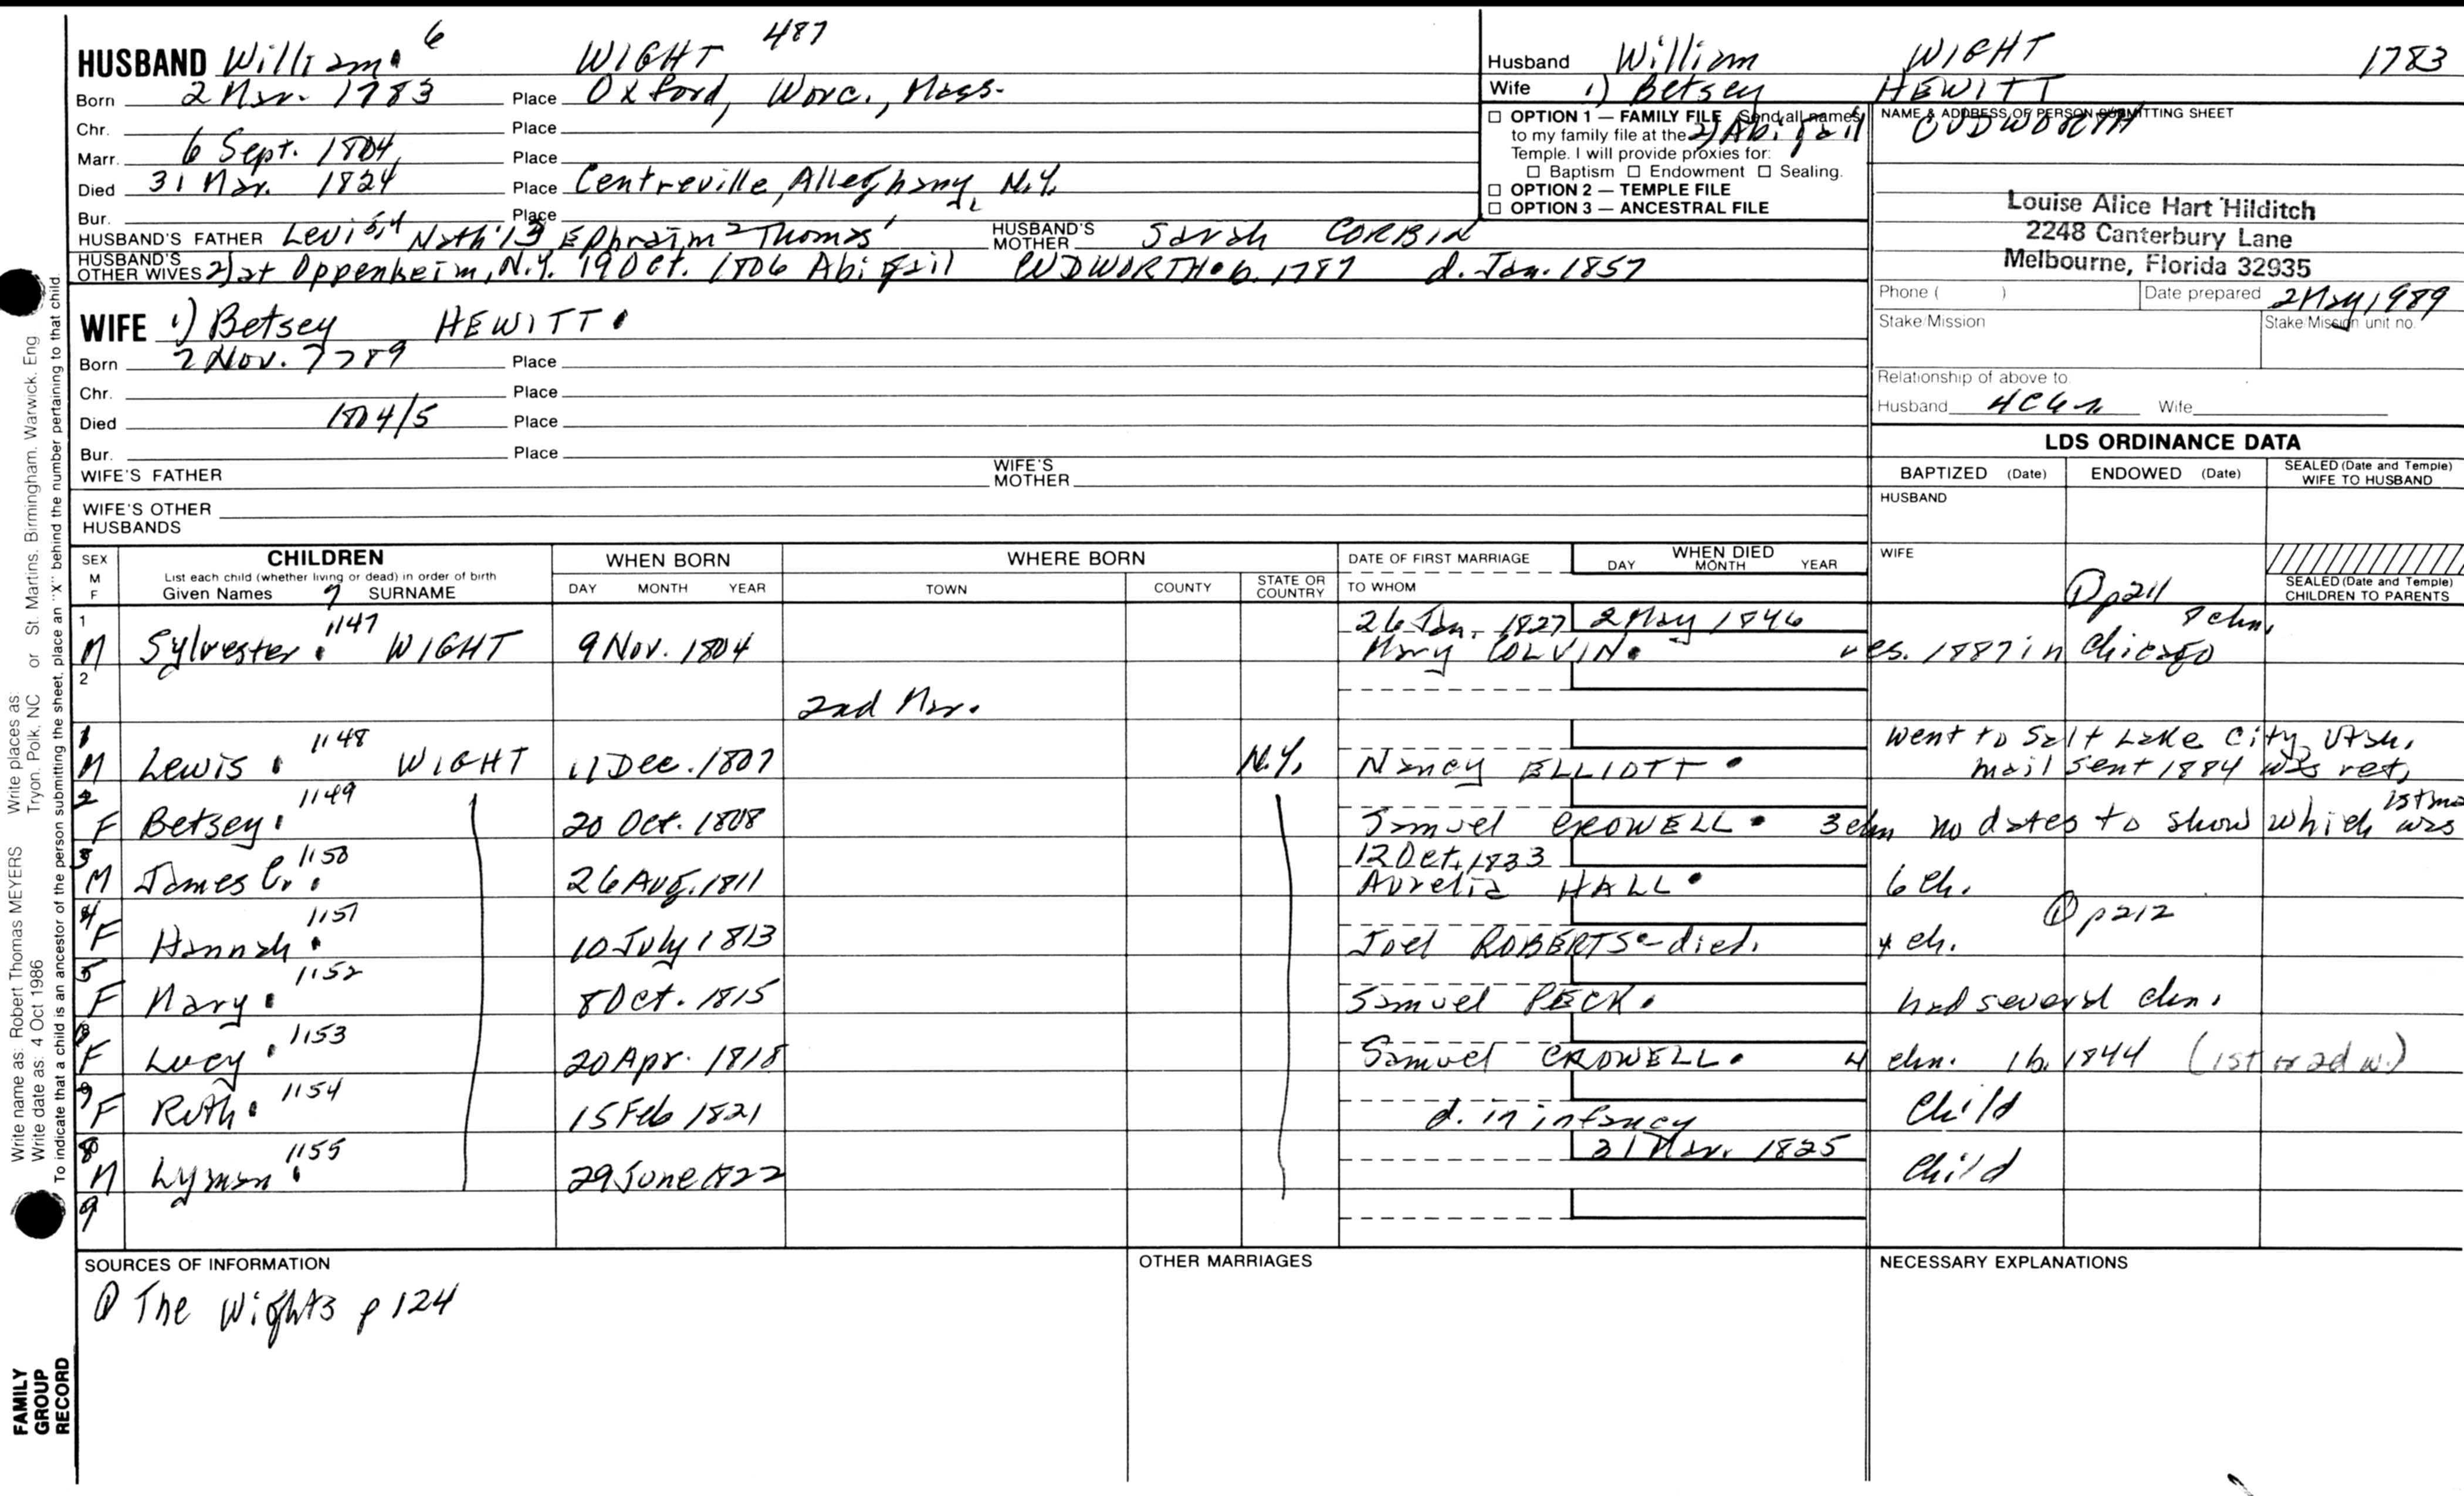 HUSBAND William 6 WIGHT 487
Born 2 Mar. 1783 Place Oxford, Worc., Mass.
Chr. Place
Marr. 6 Sept. 1804 Place
Died 31 Mar. 1824 Place Centreville, Alleghany, N.Y.
Bur. Place
HUSBAND'S FATHER Levi 5,4 Nath'l 3 Ephraim 2 Thomas 1 HUSBAND'S MOTHER Sarah CORBIN
HUSBAND'S OTHER WIVES 2) at Oppenheim, N.Y. 19 Oct. 1806 Abigail CUDWORTH b. 1787 d. Jan. 1857
WIFE 1) Betsey HEWITT
Born 2 Nov. 1789 Place
Chr. Place
Died 1804/5 Place
Bur. Place
WIFE'S FATHER WIFE'S MOTHER
WIFE'S OTHER HUSBANDS
Husband William WIGHT 1783
Wife 1) Betsey HEWITT
2) Abigail CUDWORTH
OPTION 1 — FAMILY FILE Send all names
to my family file at the
Temple. I will provide proxies for:
Baptism Endowment Sealing.
OPTION 2 — TEMPLE FILE
OPTION 3 — ANCESTRAL FILE
NAME & ADDRESS OF PERSON SUBMITTING SHEET
Louise Alice Hart Hilditch
2248 Canterbury Lane
Melbourne, Florida 32935
Phone ( ) Date prepared 2 May 1989
Stake/Mission Stake/Mission unit no.
Relationship of above to
Husband Wife
LDS ORDINANCE DATA
BAPTIZED (Date) ENDOWED (Date) SEALED (Date and Temple) WIFE TO HUSBAND
HUSBAND
WIFE
SEALED (Date and Temple) CHILDREN TO PARENTS
SEX M F
CHILDREN
List each child (whether living or dead) in order of birth
Given Names 7 SURNAME
WHEN BORN DAY MONTH YEAR
WHERE BORN TOWN COUNTY STATE OR COUNTRY
DATE OF FIRST MARRIAGE TO WHOM
WHEN DIED DAY MONTH YEAR
① p211
8 chn.
1 M Sylvester 1147 WIGHT 9 Nov. 1804 26 Jan. 1827 2 May 1846
Mary COLVIN res. 1887 in Chicago
2 2nd Mar.
1 M Lewis 1148 WIGHT 11 Dec. 1807 N.Y. Nancy ELLIOTT went to Salt Lake City, Utah,
mail sent 1884 was ret.
2 F Betsey 1149 20 Oct. 1808 Samuel CROWELL 3 chn no dates to show which was 1st
3 M James C. 1150 26 Aug. 1811 12 Oct. 1833
Aurelia HALL 6 ch.
4 F Hannah 1151 10 July 1813 Joel ROBERTS died. 4 ch. ① p212
5 F Mary 1152 8 Oct. 1815 Samuel PECK had several chn.
6 F Lucy 1153 20 Apr. 1818 Samuel CROWELL 4 chn. 1 b. 1844 (1st or 2d w.)
7 F Ruth 1154 15 Feb 1821 d. in infancy Child
8 M Lyman 1155 29 June 1822 31 Mar. 1825 Child
9
SOURCES OF INFORMATION
① The Wights p 124
OTHER MARRIAGES
NECESSARY EXPLANATIONS
Write name as: Robert Thomas MEYERS Write places as: Tryon, Polk, NC or St. Martins, Birmingham, Warwick, Eng
Write date as: 4 Oct 1986
To indicate that a child is an ancestor of the person submitting the sheet, place an "X" behind the number pertaining to that child.
FAMILY
GROUP
RECORD